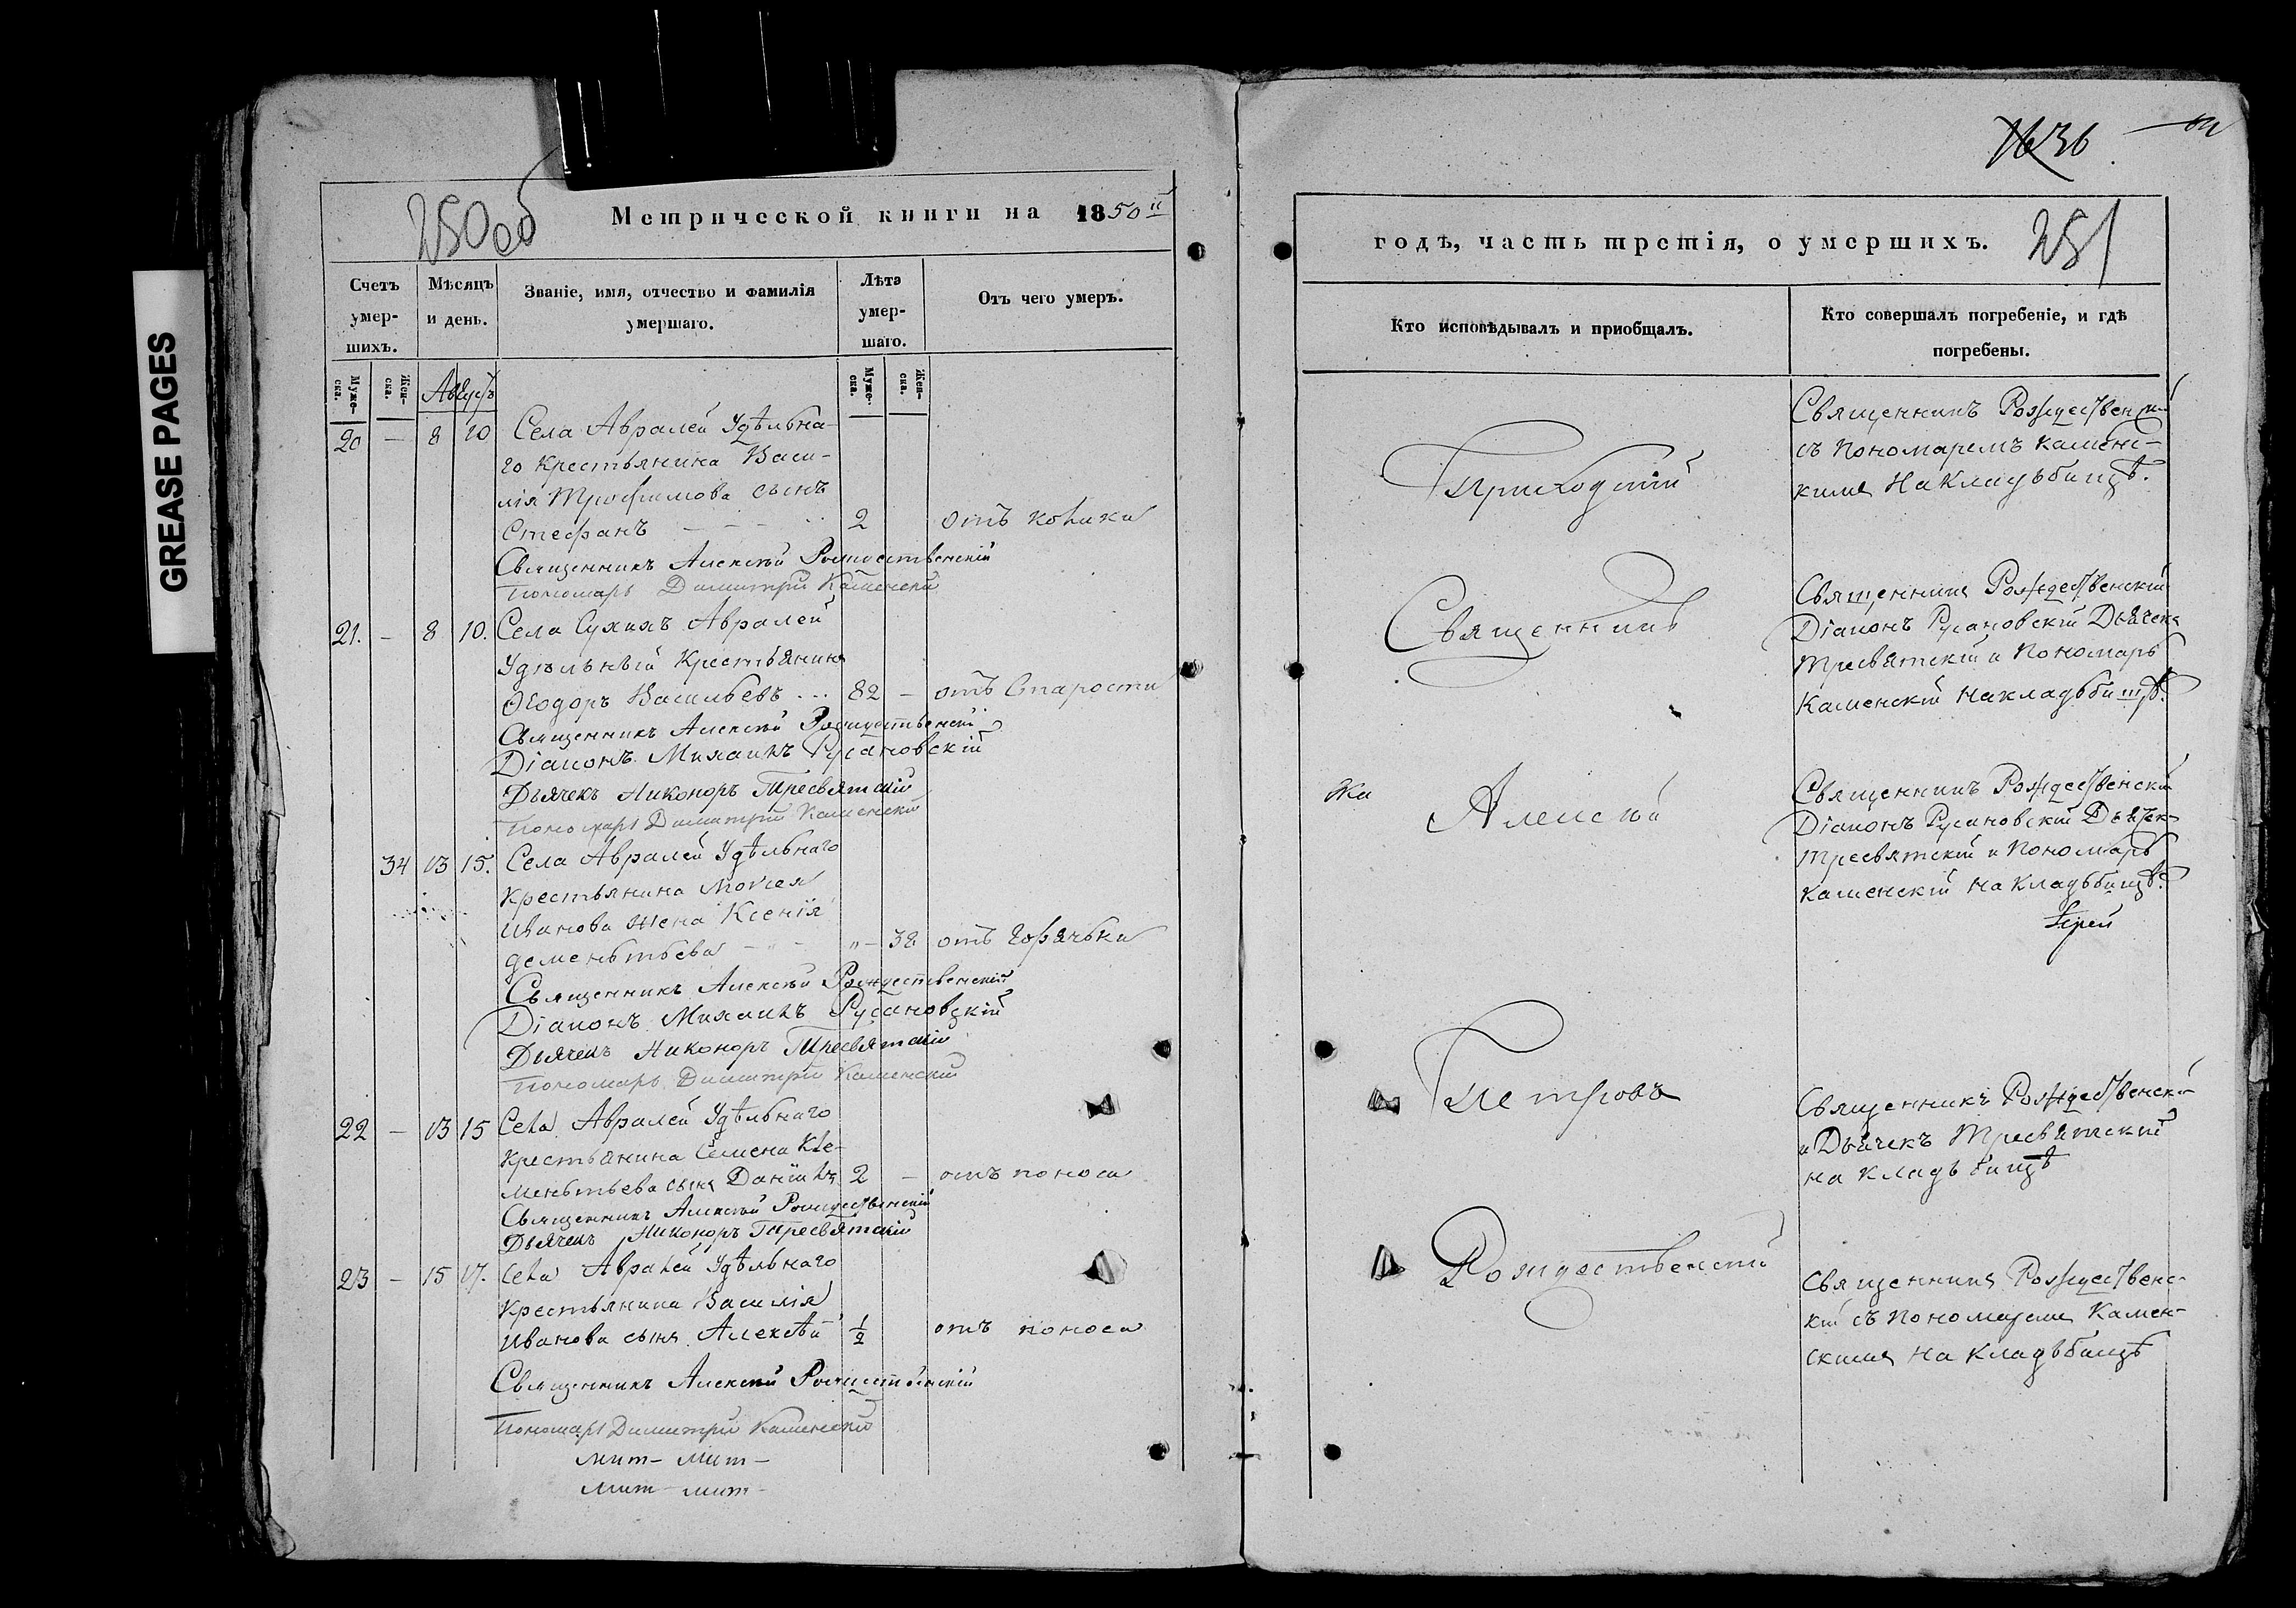 GREASE PAGES
250об
Метрической книги на 1850й
Счетъ умер-шихъ.
Мѣсяцъ и день.
Званіе, имя, отчество и фамилія умершаго.
Лѣта умер-шаго.
Отъ чего умеръ.
Муже-ска.
Жен-ска.
Августъ
Муже-ска.
Жен-ска.
20 — 8 10 Села Авралей Удѣльна-
го Крестьянина Васи-
лія Трофимова сынъ
Стефанъ — — — 2 отъ колики
Священникъ Алексѣй Рождественскій
Пономарь Димитрій Каменскій
21. — 8 10. Села Сухихъ Авралей
Удѣльный Крестьянинъ
Ѳеодоръ Васильевъ ... 82 — отъ Старости
Священникъ Алексѣй Рождественскій
Діаконъ Михаилъ Русановскій
Дьячекъ Никоноръ Тресвятскій
Пономарь Димитрій Каменскій
34 13 15. Села Авралей Удѣльнаго
Крестьянина Моисея
Иванова жена Ксенія
дементьева — „ — „ — 38 отъ Горячьки
Священникъ Алексѣй Рождественскій
Діаконъ Михаилъ Русановскій
Дьячекъ Никоноръ Тресвятскій
Пономарь Димитрій Каменскій
22 — 13 15 Села Авралей Удѣльнаго
Крестьянина Семена Кле-
меньтьева сынъ Даніилъ 2 — отъ поноса
Священникъ Алексѣй Рождественскій
Дьячекъ Никоноръ Тресвятскій
23 — 15 17. Села Авралей Удѣльнаго
Крестьянина Василія
Иванова сынъ Алексѣй ½ отъ поноса
Священникъ Алексѣй Рождественскій
Пономарь Димитрій Каменскій
мит- мит-
мит- мит-
1636
годѣ, часть третія, о умершихъ.
251
Кто исповѣдывалъ и пріобщалъ.
Кто совершалъ погребеніе, и гдѣ погребены.
Приходскій
Священникъ Рождественскій
съ Пономаремъ Каменс-
кимъ на Кладьбищѣ.
Священникъ
Священникъ Рождественскій
Діаконъ Русановскій Дьячекъ
Тресвятскій и Пономарь
Каменскій на кладьбищѣ.
Алексѣй
Священникъ Рождественскій
Діаконъ Русановскій Дьячек-
Тресвятскій и Пономарь
Каменскій на Кладьбищѣ.
Іерей
Петровъ
Священникъ Рождественскій
и Дьячекъ Тресвятский
на кладьбищѣ
Рождественскій
Священникъ Рождественс-
кій съ Пономаремъ Камен-
скимъ на кладьбищѣ